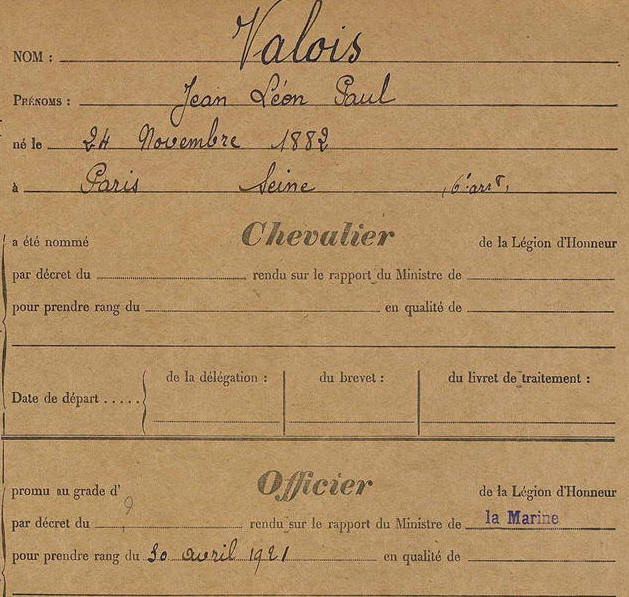 NOM : Valois
PRÉNOMS : Jean Léon Paul
né le 24 Novembre 1882
à Paris Seine (6e arrt)
a été nommé Chevalier de la Légion d'Honneur
par décret du rendu sur le rapport du Ministre de
pour prendre rang du en qualité de
de la délégation : du brevet : du livret de traitement :
Date de départ .....
promu au grade d' Officier de la Légion d'Honneur
par décret du rendu sur le rapport du Ministre de la Marine
pour prendre rang du 30 avril 1921 en qualité de